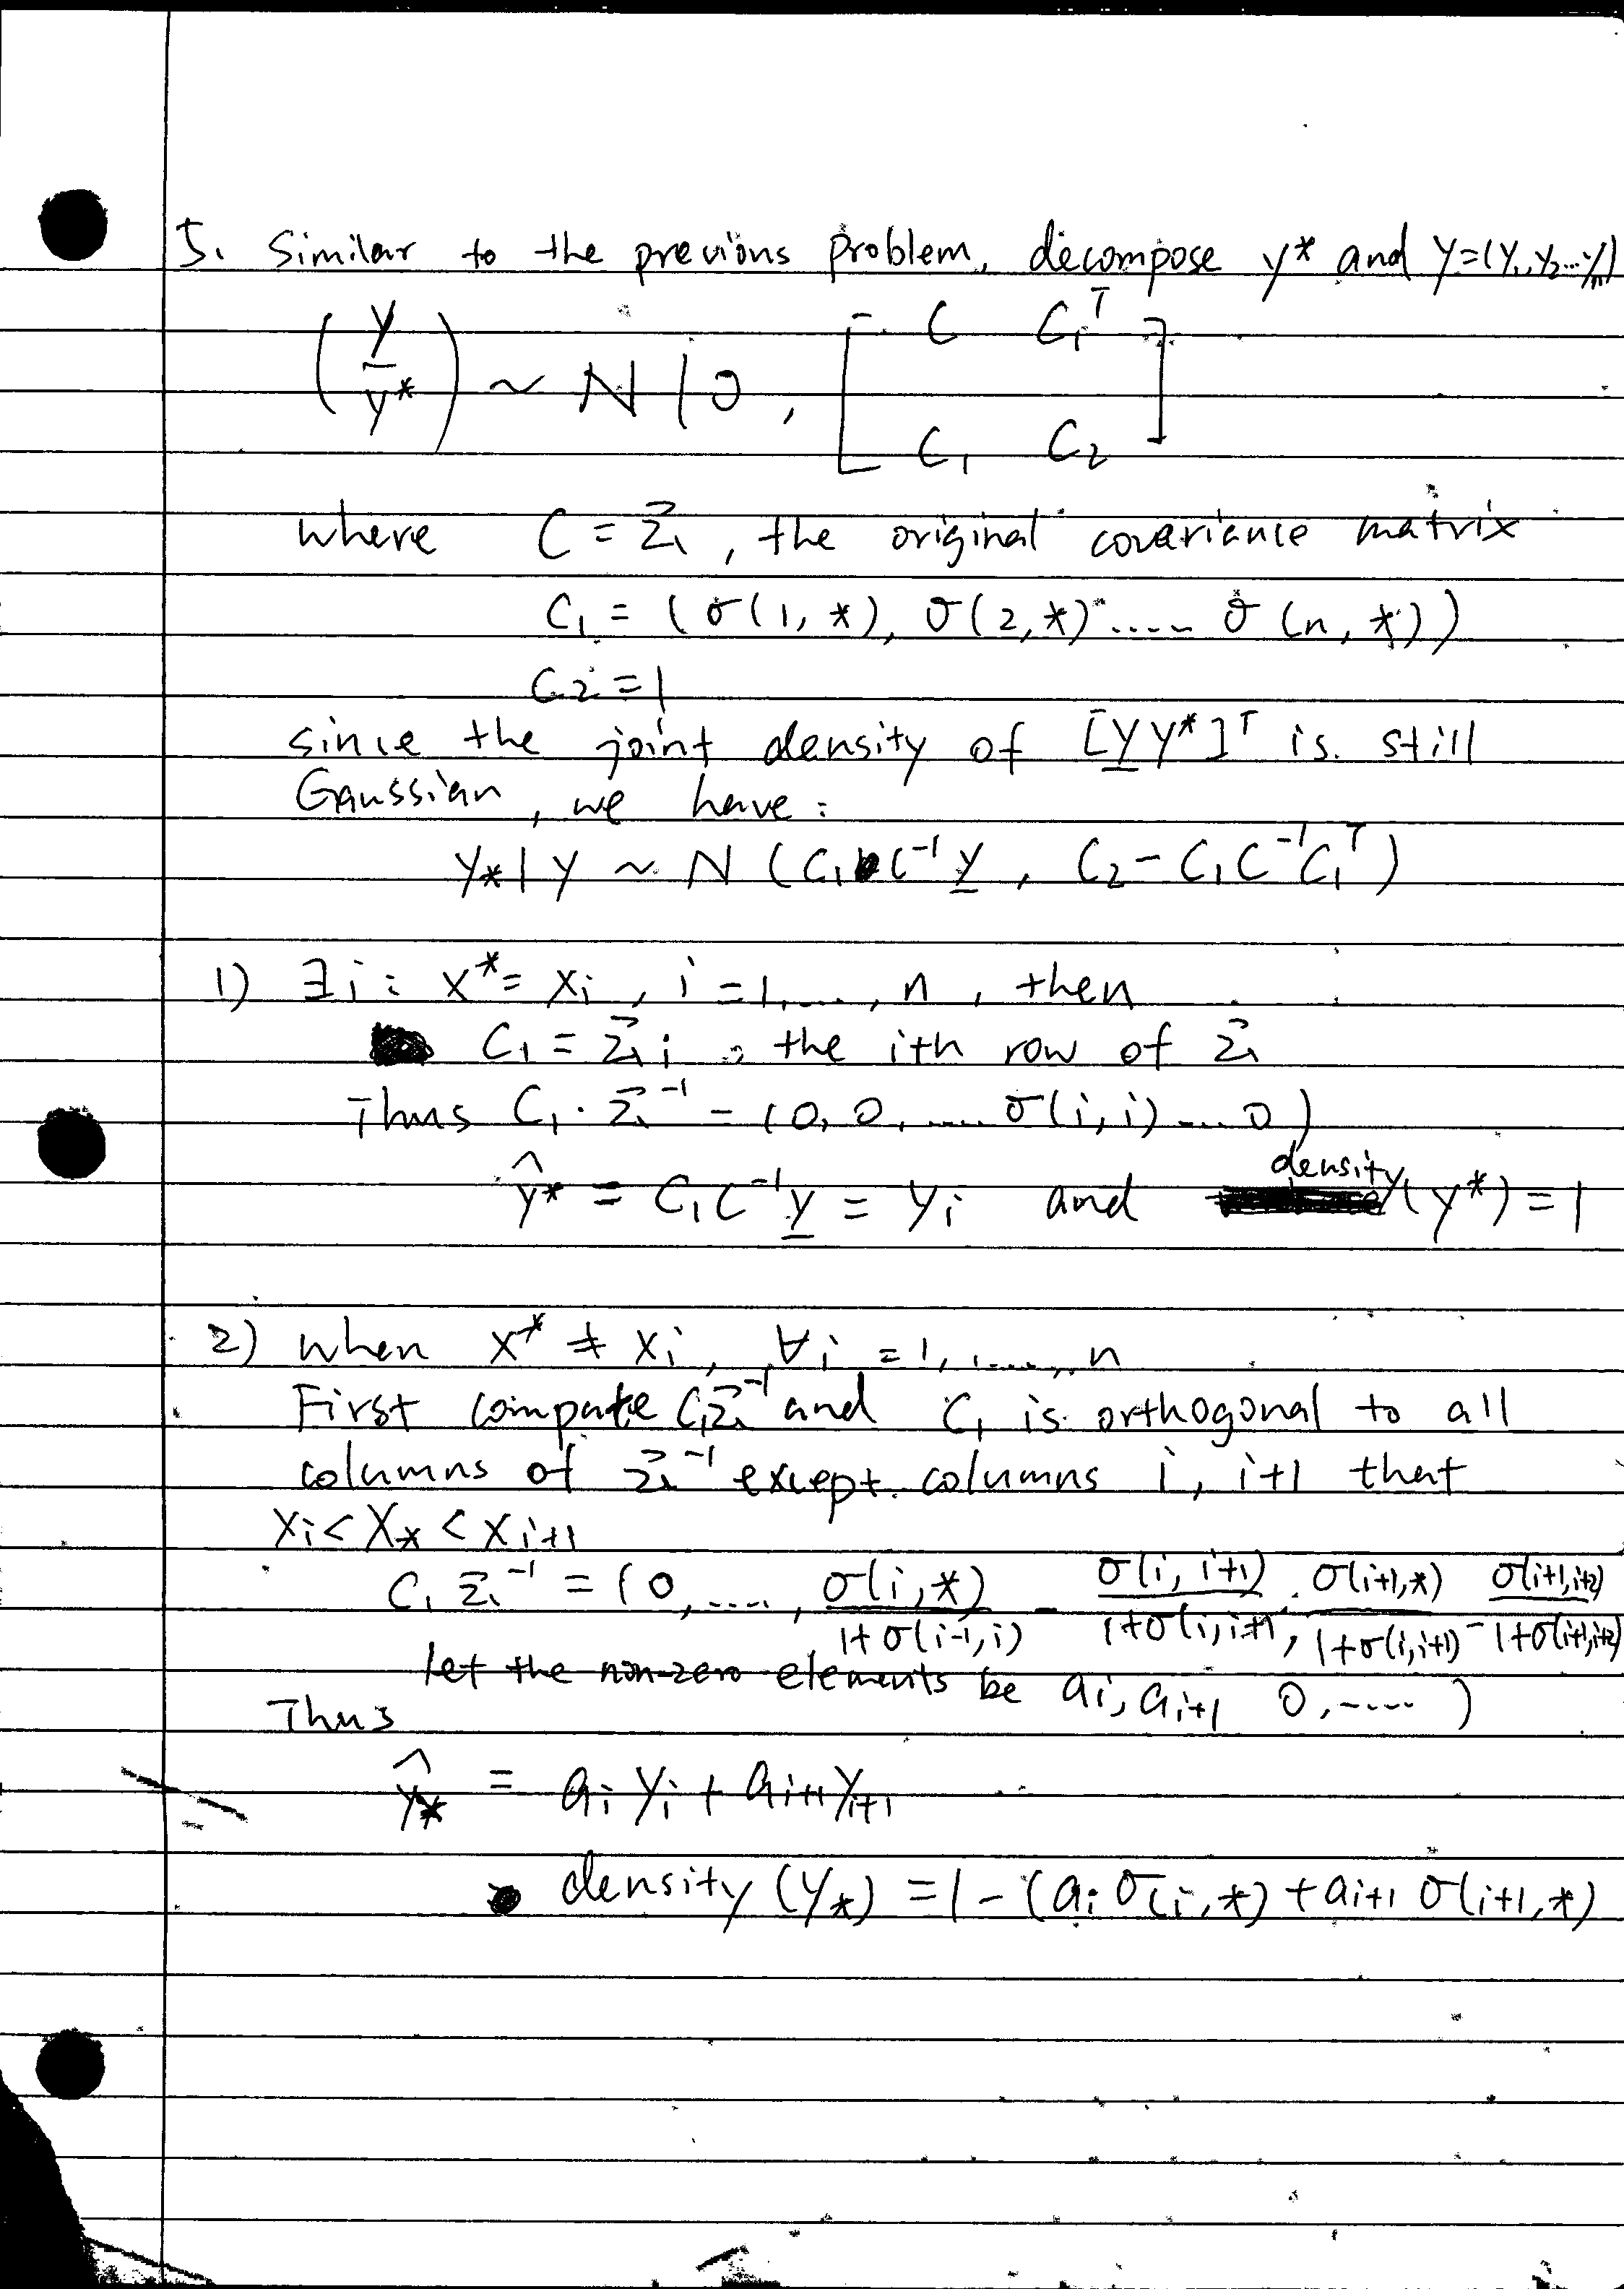 5. Similar to the previous problem, decompose y* and y=(y1,y2...yn)
(y / y*) ~ N(0, [C C1^T
C1 C2]
where C = Σ, the original covariance matrix
C1 = (σ(1,*), σ(2,*) ..... σ(n,*))
C2 = 1
since the joint density of [y y*]^T is still
Gaussian, we have:
y*|y ~ N(C1 C^-1 y, C2 - C1 C^-1 C1^T)
1) ∃i: x* = xi, i = 1,...,n, then
C1 = Σi, the ith row of Σ
Thus C1 · Σ^-1 = (0, 0, .... σ(i,i) ... 0)
ŷ* = C1 C^-1 y = yi and density(y*) = 1
2) when x* ≠ xi, ∀i = 1, ....., n
First compute C1Σ^-1 and C1 is orthogonal to all
columns of Σ^-1 except columns i, i+1 that
xi < x* < xi+1
C1 Σ^-1 = (0, ...., σ(i,*)/1+σ(i-1,i) - σ(i,i+1)/1+σ(i,i+1), σ(i+1,*)/1+σ(i,i+1) - σ(i+1,i+2)/1+σ(i+1,i+2)
let the non-zero elements be ai, ai+1 0, ..... )
Thus
ŷ* = ai yi + ai+1 yi+1
density (y*) = 1 - (ai σ(i,*) + ai+1 σ(i+1,*)